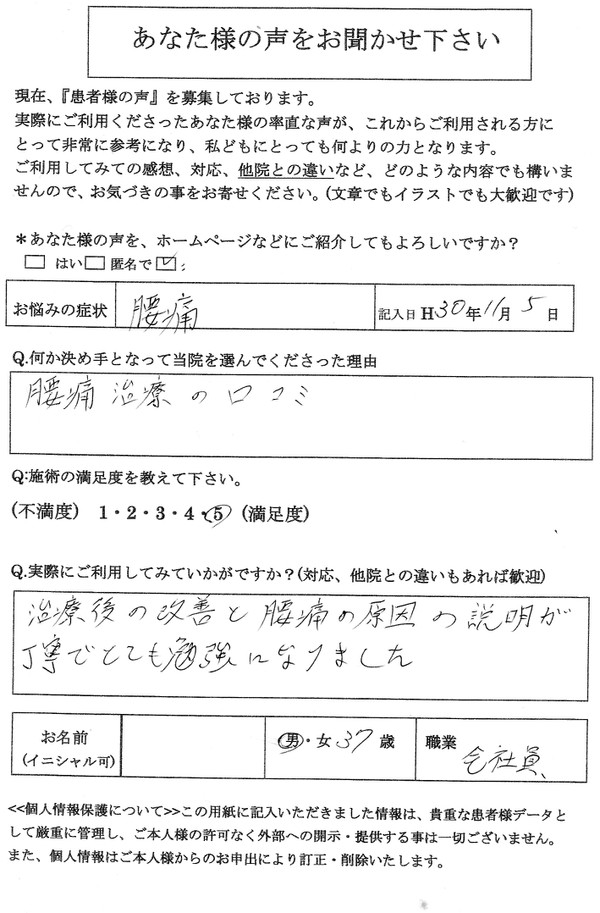 あなた様の声をお聞かせ下さい
現在、『患者様の声』を募集しております。
実際にご利用くださったあなた様の率直な声が、これからご利用される方に
とって非常に参考になり、私どもにとっても何よりの力となります。
ご利用してみての感想、対応、他院との違いなど、どのような内容でも構いま
せんので、お気づきの事をお寄せください。(文章でもイラストでも大歓迎です)
＊あなた様の声を、ホームページなどにご紹介してもよろしいですか？
□ はい □ 匿名で ☑
お悩みの症状 腰痛 記入日 H30年11月5日
Q.何か決め手となって当院を選んでくださった理由
腰痛治療の口コミ
Q:施術の満足度を教えて下さい。
(不満度) 1・2・3・4・5 (満足度)
Q.実際にご利用してみていかがですか？(対応、他院との違いもあれば歓迎)
治療後の改善と腰痛の原因の説明が
丁寧でとても勉強になりました
お名前 男・女 37歳 職業 会社員
(イニシャル可)
<<個人情報保護について>>この用紙に記入いただきました情報は、貴重な患者様データと
して厳重に管理し、ご本人様の許可なく外部への開示・提供する事は一切ございません。
また、個人情報はご本人様からのお申出により訂正・削除いたします。